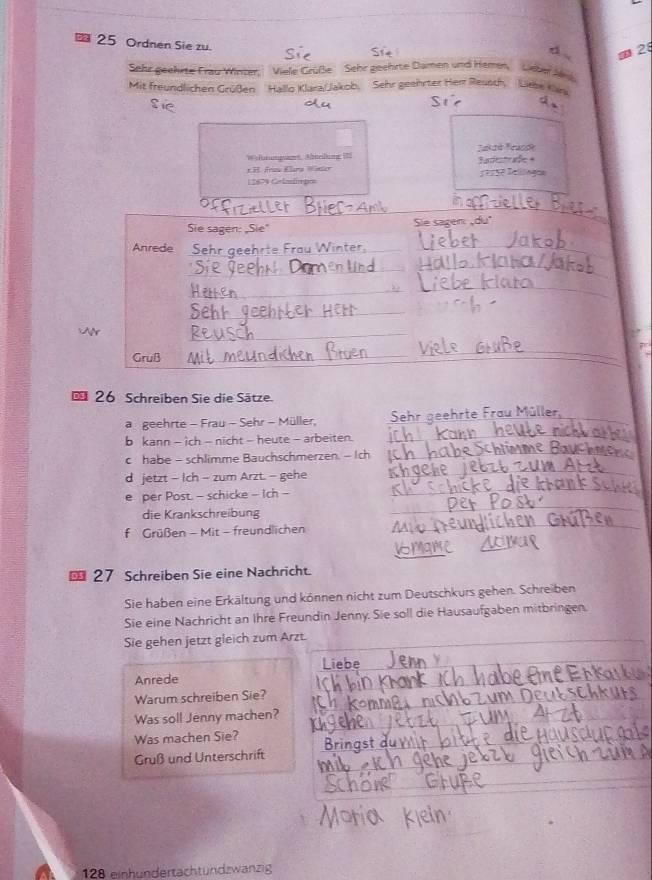 25 Ordnen Sie zu.
28
Sie Sie
Sehr geehrte Frau Winter, Viele Grüße Sehr geehrte Damen und Herren, Lieber Jakob
Mit freundlichen Grüßen Hallo Klara/Jakob, Sehr geehrter Herr Reusch, Liebe Klara
Sie du Sie du
z.H. Frau Klara Winter
offizieller Brief
Sie sagen: „Sie" Sie sagen: „du"
Anrede Sehr geehrte Frau Winter, Lieber Jakob.
Sie geehrt Damen und Hallo Klara/Jakob
Herren Liebe Klara
Sehr geehrter Herr
Reusch
Gruß Mit Viele Gruße
D3 26 Schreiben Sie die Sätze.
a geehrte – Frau – Sehr – Müller, Sehr geehrte Frau Müller,
b kann – ich – nicht – heute – arbeiten. ich kann heute nicht arbei
c habe – schlimme Bauchschmerzen. – Ich Ich habe Schlimme
d jetzt – Ich – zum Arzt. – gehe Ich gehe jetzt zum Arzt
e per Post. – schicke – Ich – Ich schicke die Krank
die Krankschreibung Per Post.
f Grüßen – Mit – freundlichen Mit freundlichen Grüßen
Vorname
D3 27 Schreiben Sie eine Nachricht.
Sie haben eine Erkältung und können nicht zum Deutschkurs gehen. Schreiben
Sie eine Nachricht an Ihre Freundin Jenny. Sie soll die Hausaufgaben mitbringen.
Sie gehen jetzt gleich zum Arzt.
Liebe Jenny
Anrede
Ich bin Krank Ich habe eine
Warum schreiben Sie?
Ich komme nicht zum Deutschkurs
Was soll Jenny machen?
Ich gehen jetzt zum Arzt
Was machen Sie?
Bringst du mir bitte die Hausaufgabe
Gruß und Unterschrift
mit ich gehe jetzt gleich zum A
Schöne Gruße
Maria Klein
128 einhundertachtundzwanzig